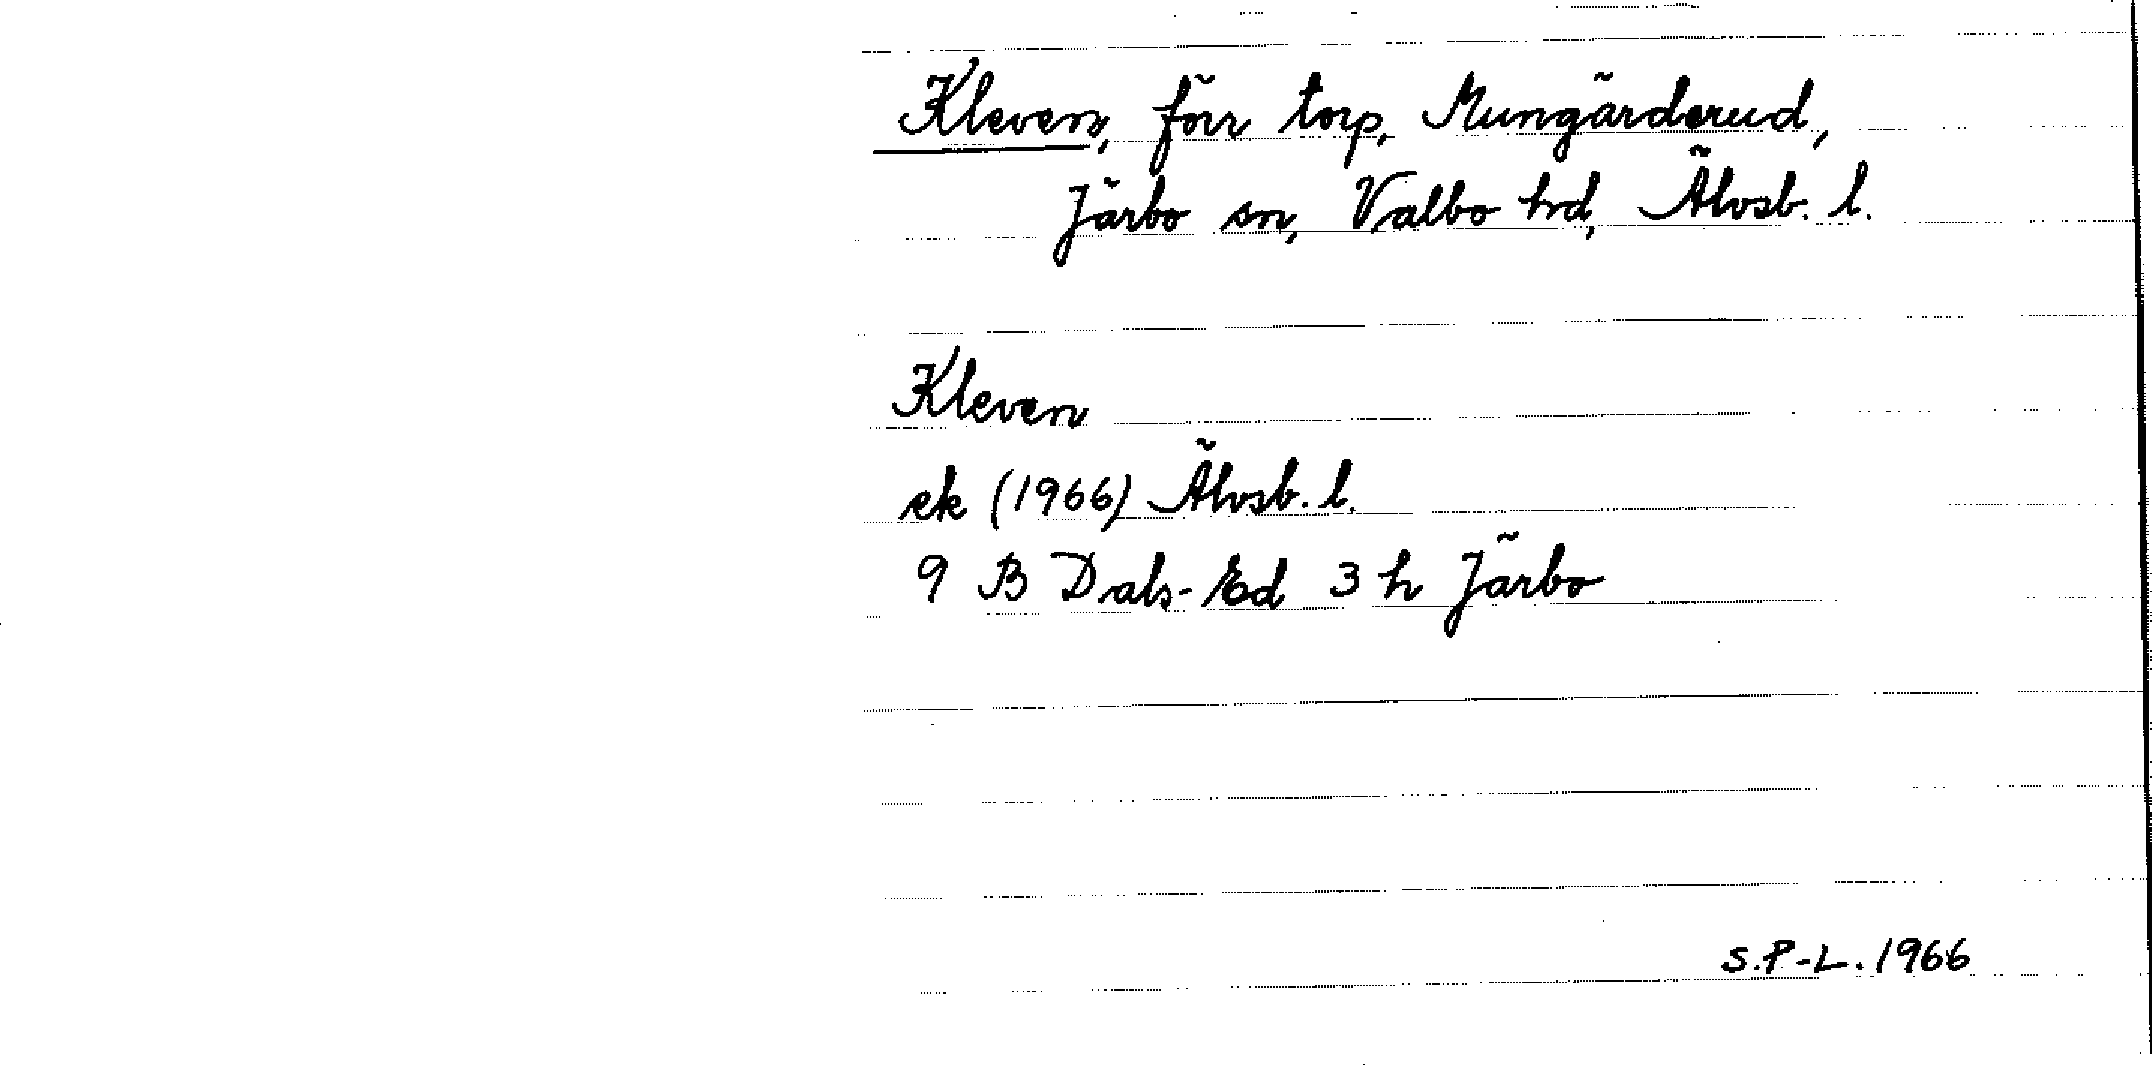 Kleven, förr torp, Mungärderud,
Järbo sn, Valbo hd, Älvsb. l.
Kleven
ek (1966) Älvsb. l.
9 B Dals-Ed 3 h Järbo
S.P-L. 1966